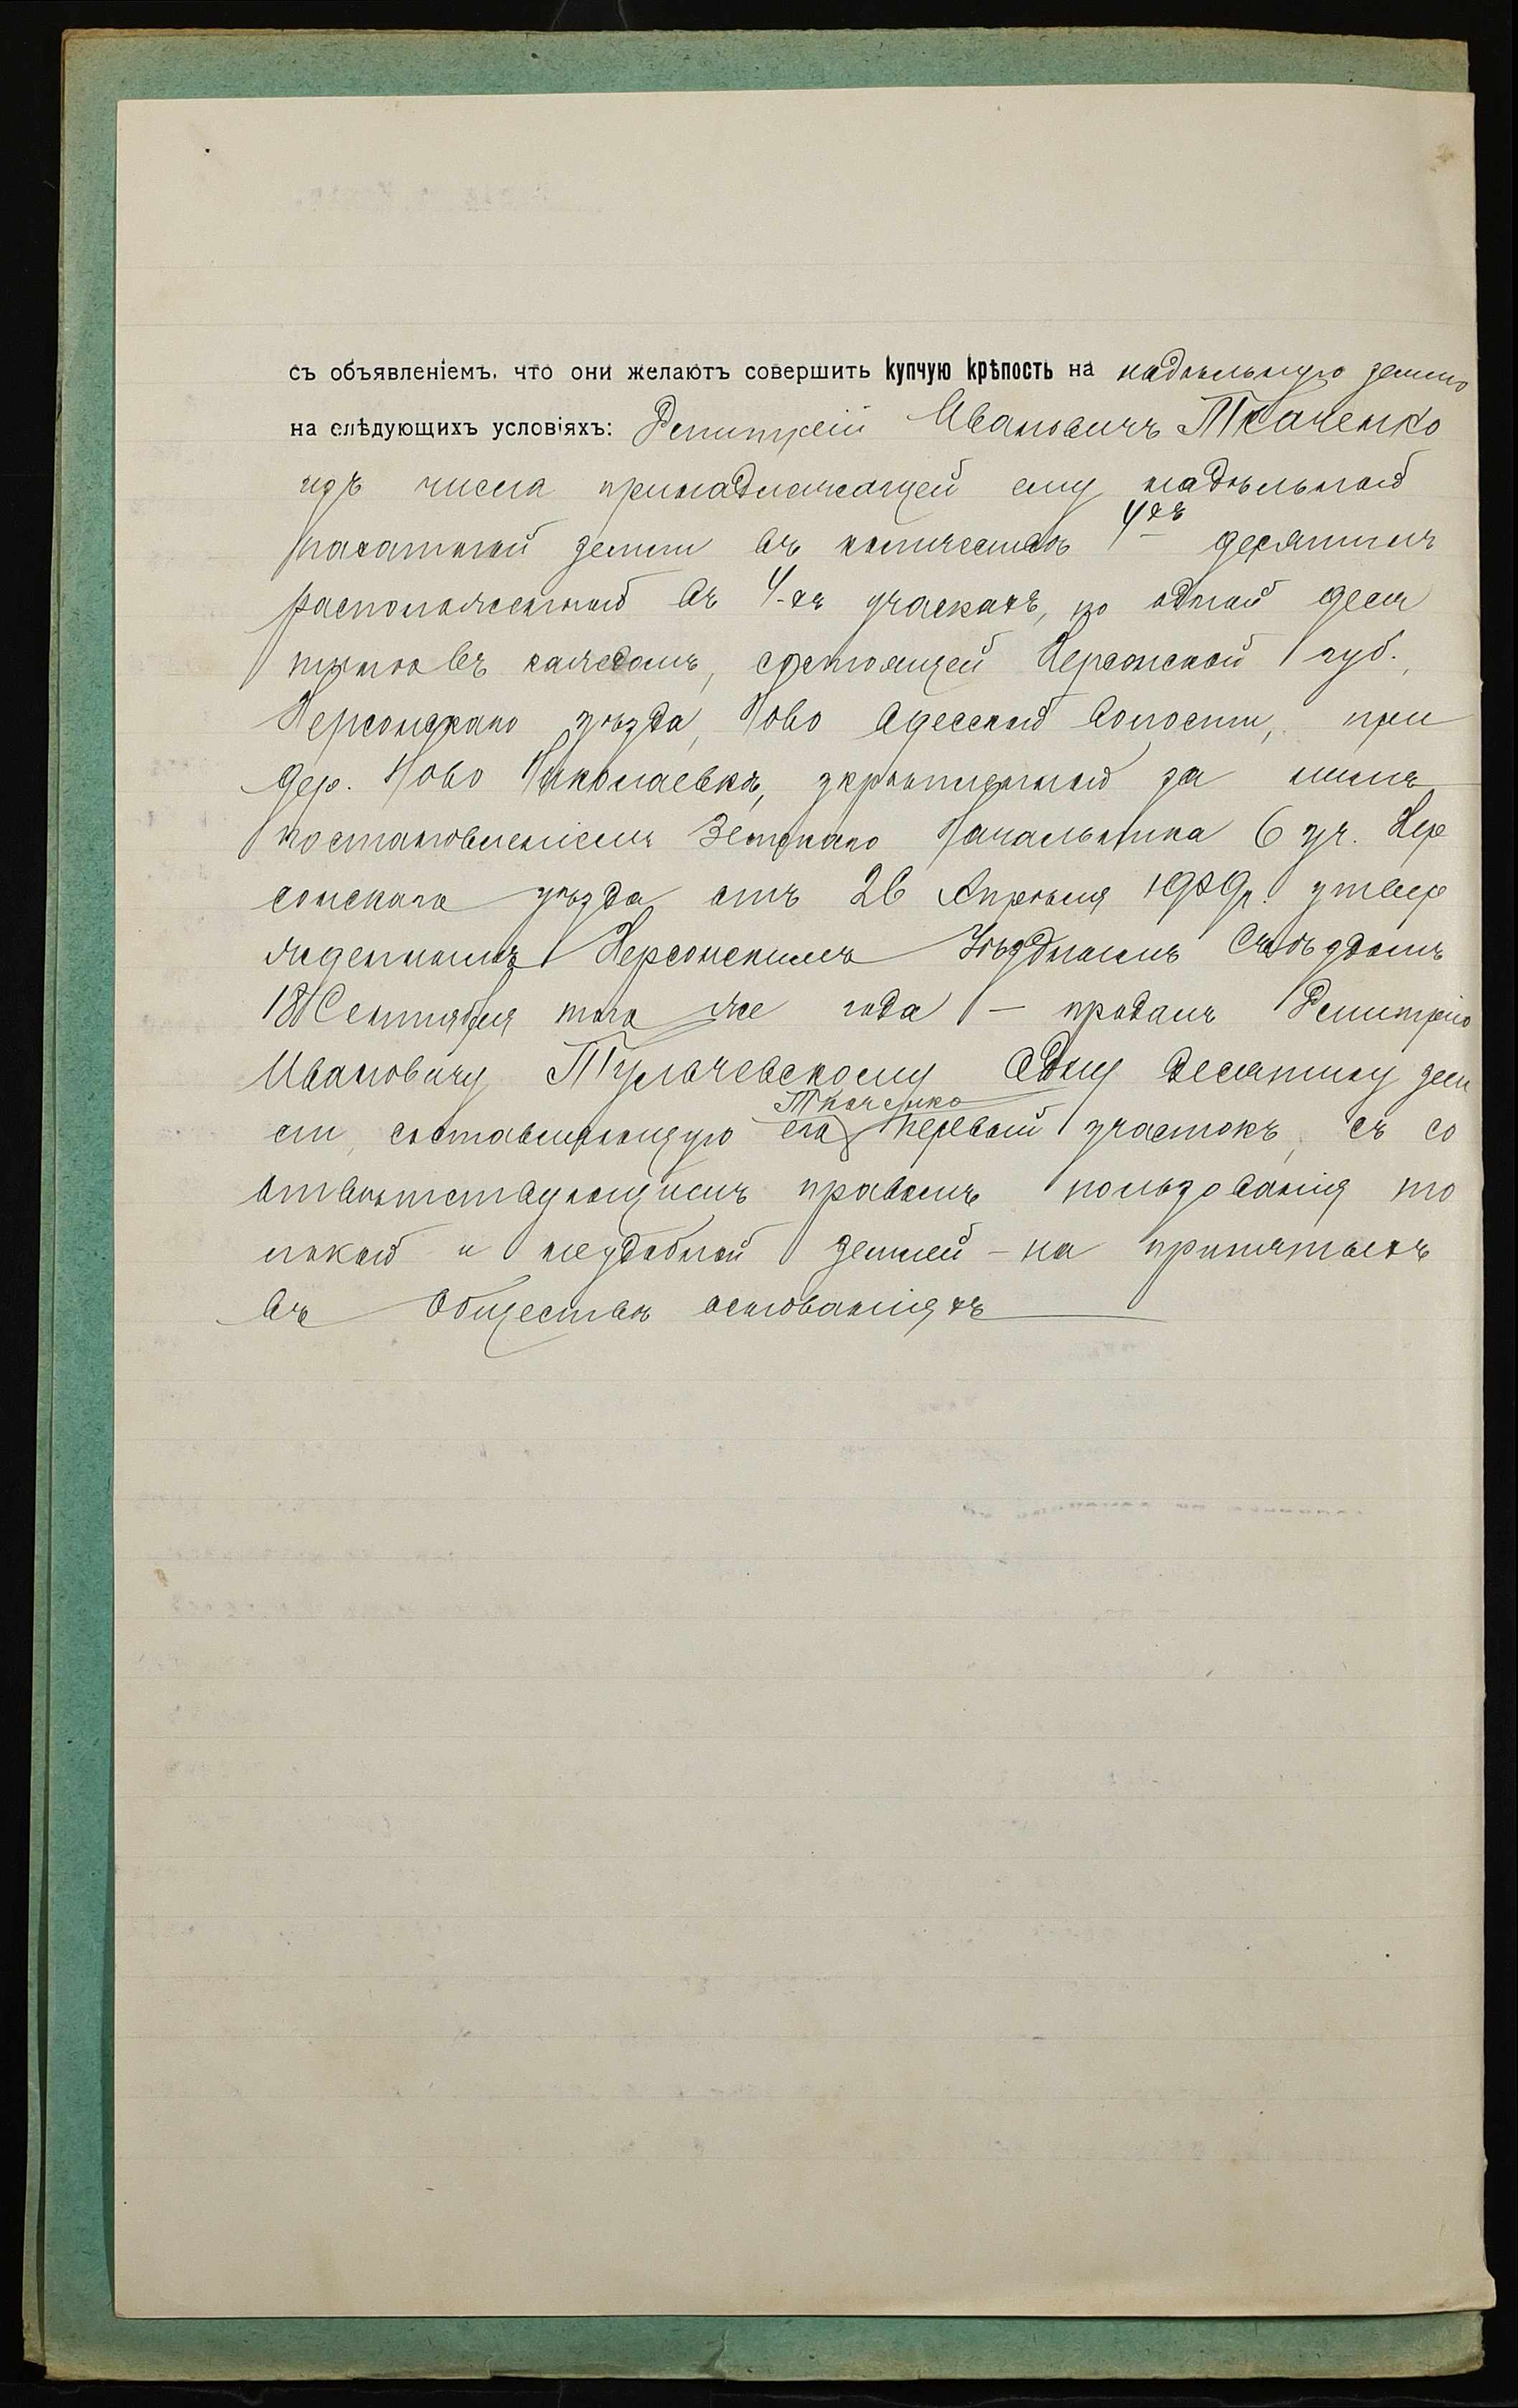 съ объявленіемъ, что они желаютъ совершить купчую крѣпость на надѣльную землю
на слѣдующихъ условіяхъ: Димитрій Ивановичъ Ткаченко
изъ числа принадлежащей ему надѣльной
пахатной земли въ количествѣ 4-хъ десятинъ
расположенной въ 4-хъ учаскахъ, по одной деся
тинѣ въ каждомъ, состоящей Херсонской губ.,
Херсонскаго уѣзда, Ново Одесской волости, при
дер. Ново Николаевкѣ, укрѣпленной за нимъ
постановленіемъ Земскаго Начальника 6 уч. Хер
сонскаго уѣзда отъ 26 Апрѣля 1909 г. утвер
жденнымъ Херсонскимъ Уѣзднымъ Съѣздомъ
18 Сентября того же года — продалъ Димитрію
Ивановичу одну десятину зем
Ткаченко
ли, составляющую его первый участокъ, съ со
отвѣтствующимъ правомъ пользованія то
локой и неудобной землей - на принятыхъ
въ обществѣ основаніяхъ